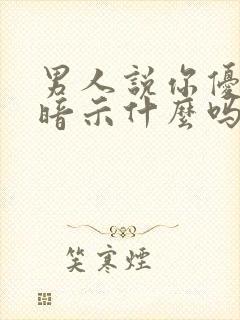 男人說你優
暗示什麼嗎
笑寒煙